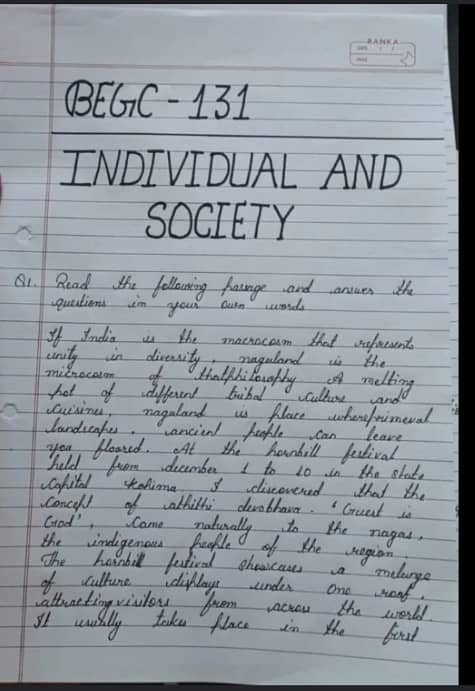 RANKA
DATE / /
PAGE
BEGC - 131
INDIVIDUAL AND
SOCIETY
Q1. Read the following passage and answer the
questions in your own words
If India is the macrocosm that represents
unity in diversity, nagaland is the
microcosm of thatphilosophy A melting
pot of different tribal culture and
cuisines, nagaland is place whereprimeval
landscapes, ancient people can leave
you floored. At the hornbill festival
held from december 1 to 10 in the state
capital kohima, I discovered that the
concept of athithi devobhava. 'Guest is
God', came naturally to the nagas,
the indigenous people of the region.
The hornbill festival showcases a melenge
of culture displays under one roof,
attracting visitors from across the world.
It usually takes place in the first